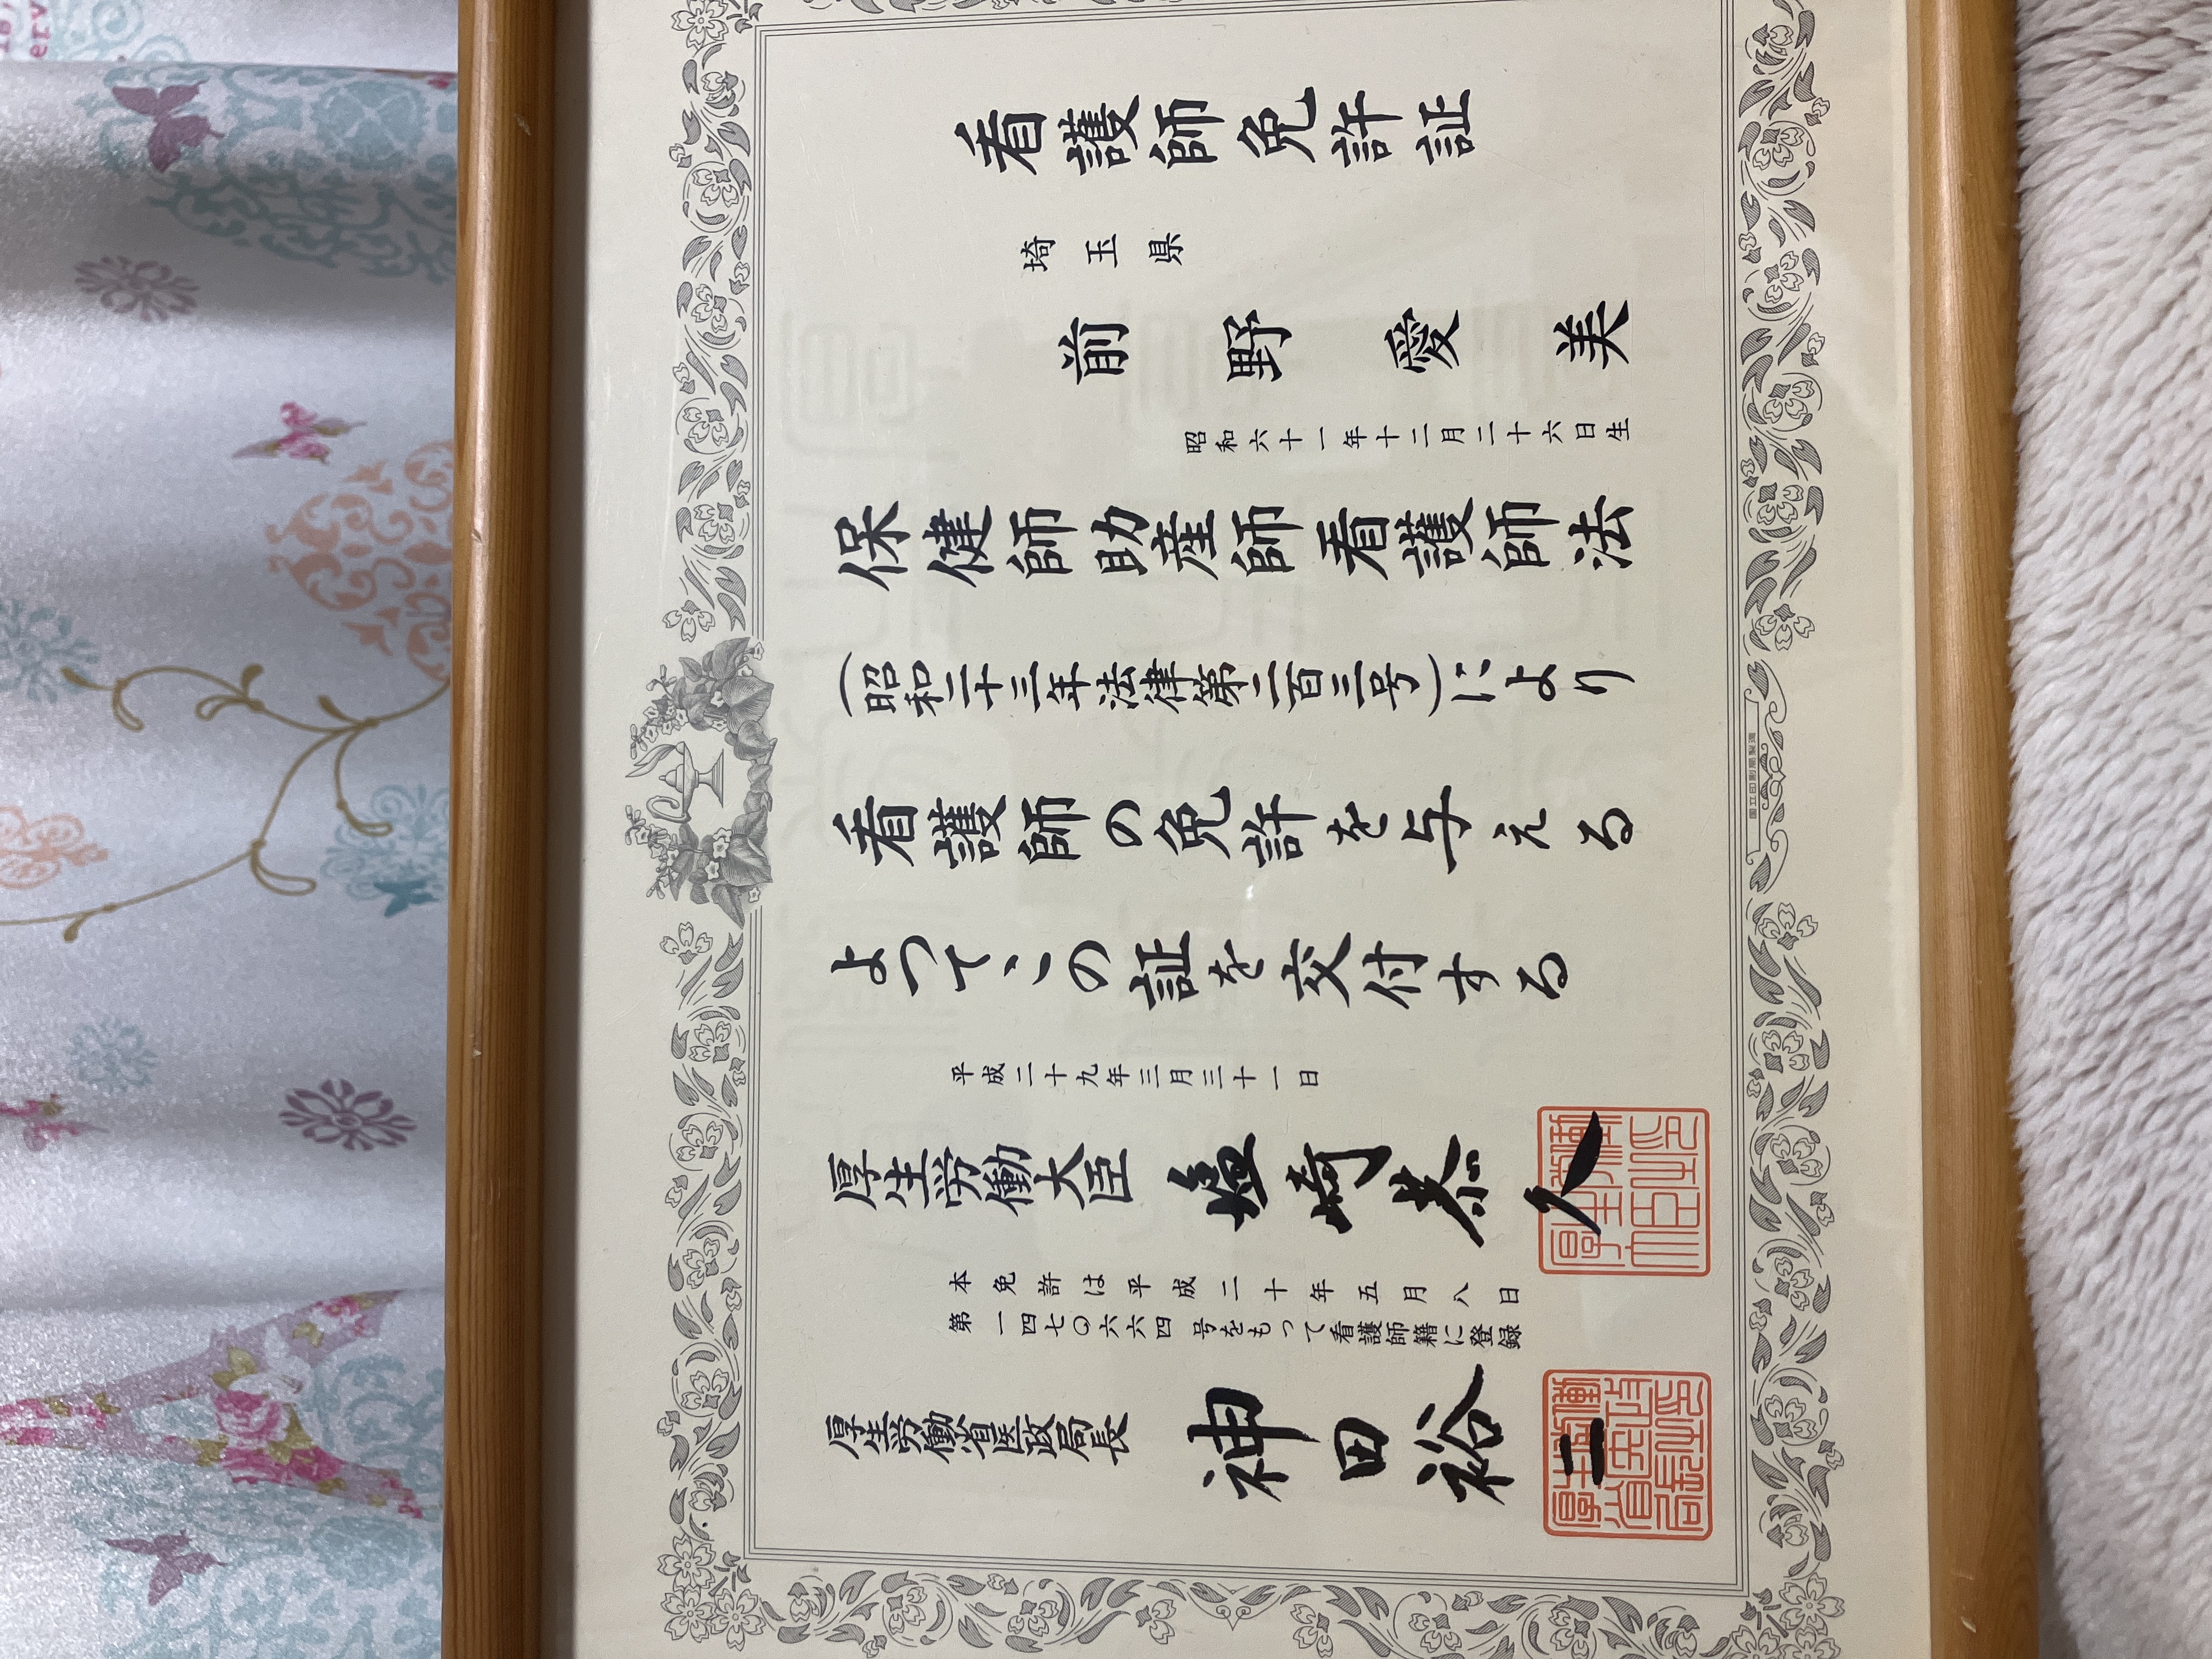 看護師免許証
埼玉県
前野愛美
昭和六十一年十二月二十六日生
保健師助産師看護師法
(昭和二十三年法律第二百三号)により
看護師の免許を与える
よってこの証を交付する
平成二十九年三月三十一日
厚生労働大臣 塩崎恭久
本免許は平成二十年五月八日
第一四七〇六六四号をもって看護師籍に登録
厚生労働省医政局長 神田裕二
国立印刷局製造